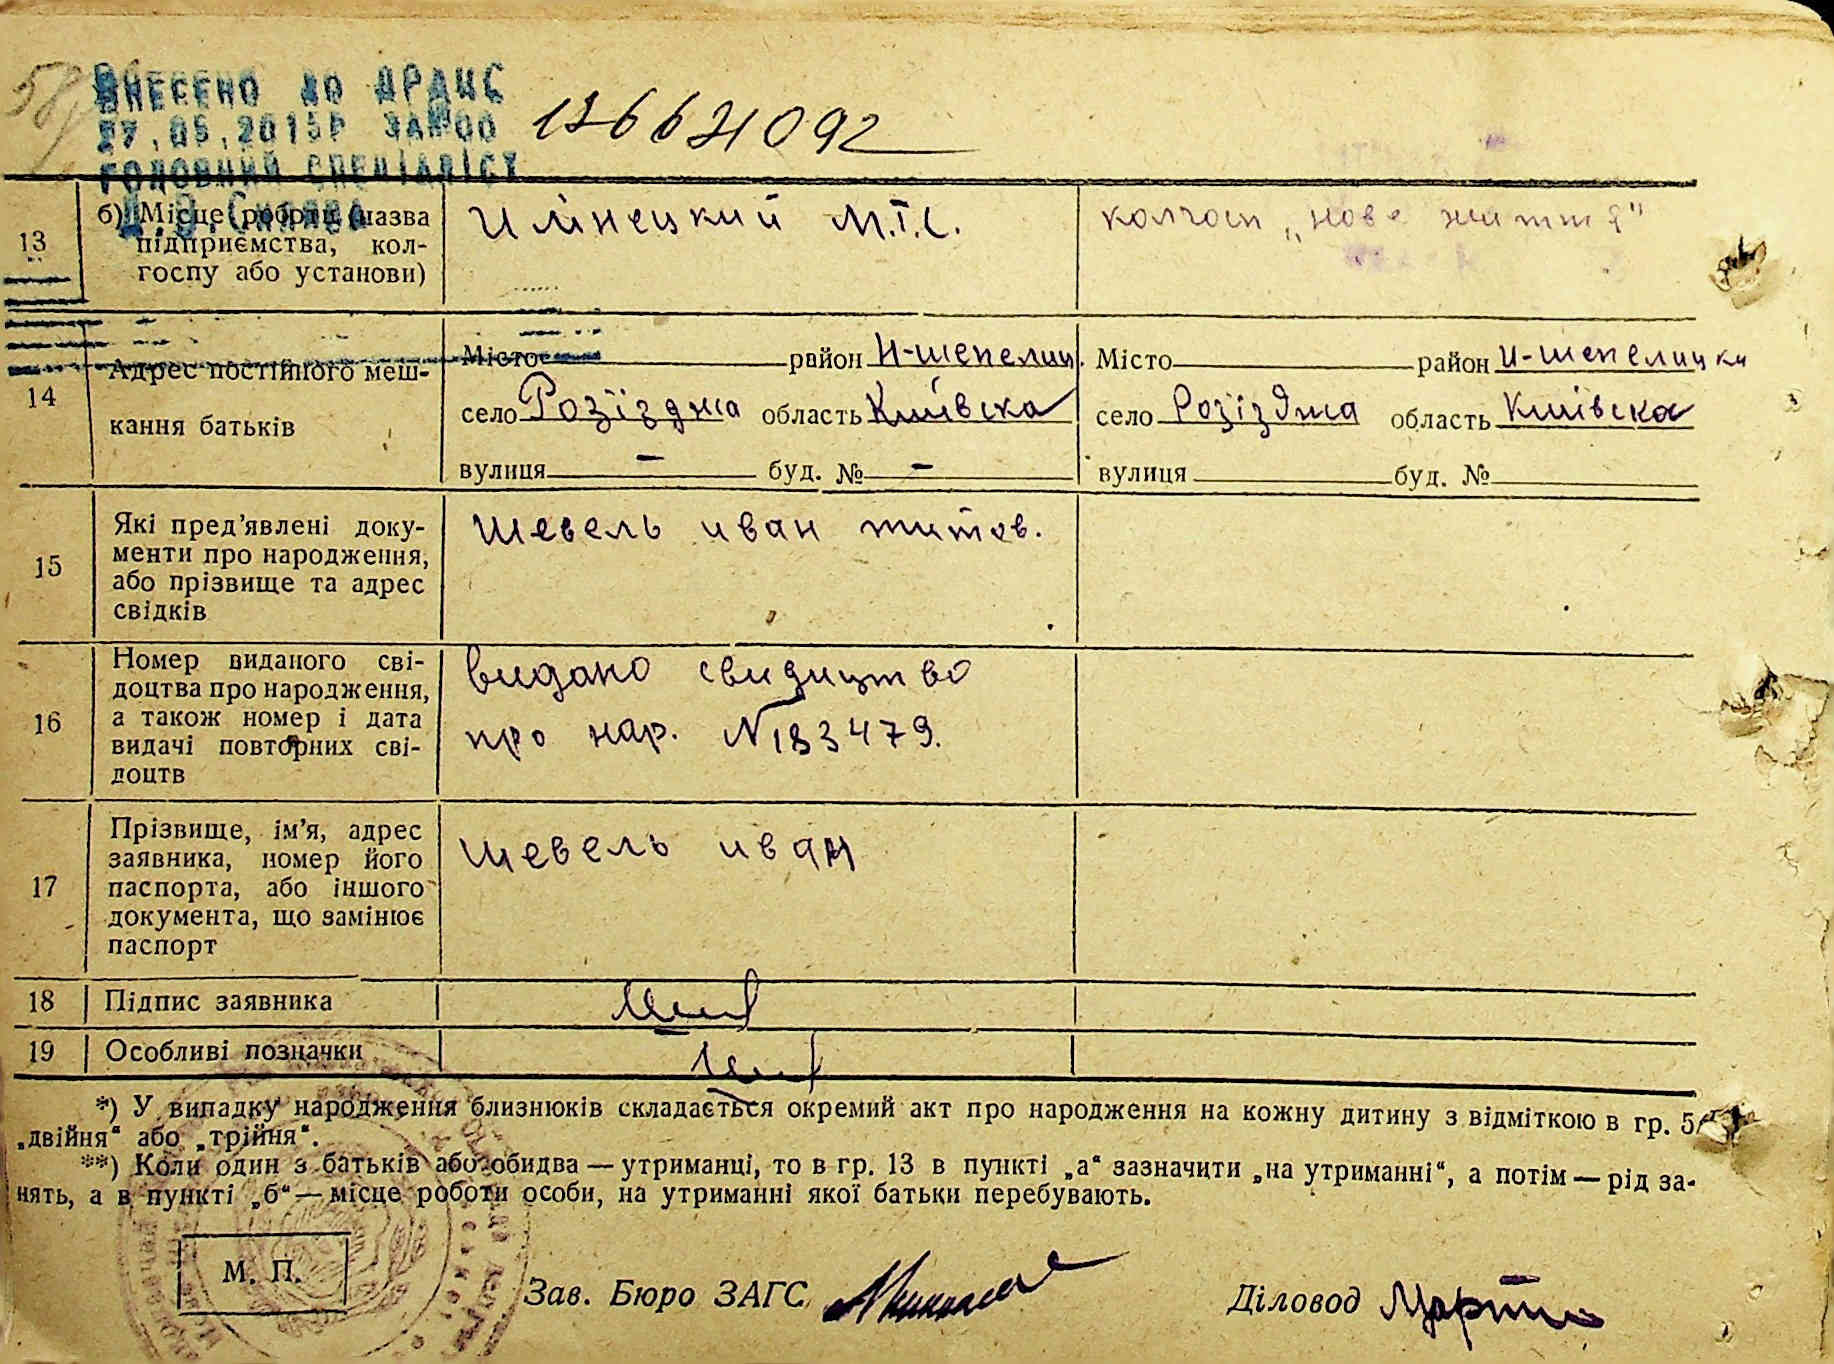 ВНЕСЕНО ДО ДРАЦС
27.05.2015Р ЗА№00 1266
ГОЛОВНИЙ СПЕЦІАЛІСТ
13 б) Місце роботи (назва підприємства, кол-
госпу або установи)
Илінецкий М.Т.С.
колгосп „нове життя"
14 Адрес постійного меш-
кання батьків
Місто район Н-шепелиц. Місто район Н-шепелицки
село Розїзджа область Київска село Розїзджа область Київска
вулиця — буд. № — вулиця буд. №
15 Які пред'явлені доку-
менти про народження,
або прізвище та адрес
свідків
Шевель иван
16 Номер виданого сві-
доцтва про народження,
а також номер і дата
видачі повторних сві-
доцтв
видано свидицтво
про нар. №183479.
17 Прізвище, ім'я, адрес
заявника, номер його
паспорта, або іншого
документа, що замінює
паспорт
шевель иван
18 Підпис заявника
19 Особливі позначки
*) У випадку народження близнюків складається окремий акт про народження на кожну дитину з відміткою в гр. 5
„двійня" або „трійня".
**) Коли один з батьків або обидва — утриманці, то в гр. 13 в пункті „а" зазначити „на утриманні", а потім — рід за-
нять, а в пункті „б" — місце роботи особи, на утриманні якої батьки перебувають.
М. П.
Зав. Бюро ЗАГС Діловод